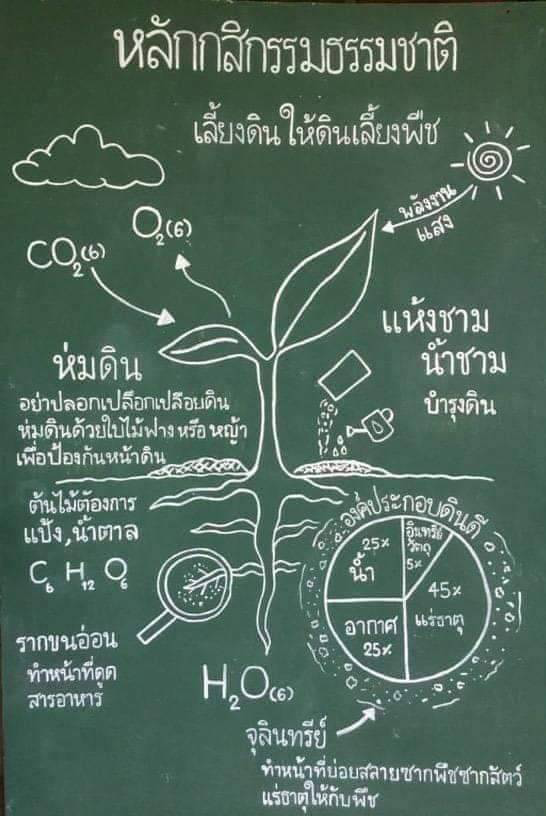 หลักกสิกรรมธรรมชาติ
เลี้ยงดินให้ดินเลี้ยงพืช
พลังงาน
แสง
O₂(6)
CO₂(6)
แห้งชาม
น้ำชาม
บำรุงดิน
ห่มดิน
อย่าปลอกเปลือกเปลือยดิน
ห่มดินด้วยใบไม้ฟาง หรือ หญ้า
เพื่อป้องกันหน้าดิน
ต้นไม้ต้องการ
แป้ง,น้ำตาล
C₆ H₁₂ O₆
องค์ประกอบดินดี
25%
น้ำ
อินทรีย์
วัตถุ
5%
45%
แร่ธาตุ
อากาศ
25%
รากขนอ่อน
ทำหน้าที่ดูด
สารอาหาร
H₂O(6)
จุลินทรีย์
ทำหน้าที่ย่อยสลายซากพืชซากสัตว์
แร่ธาตุให้กับพืช